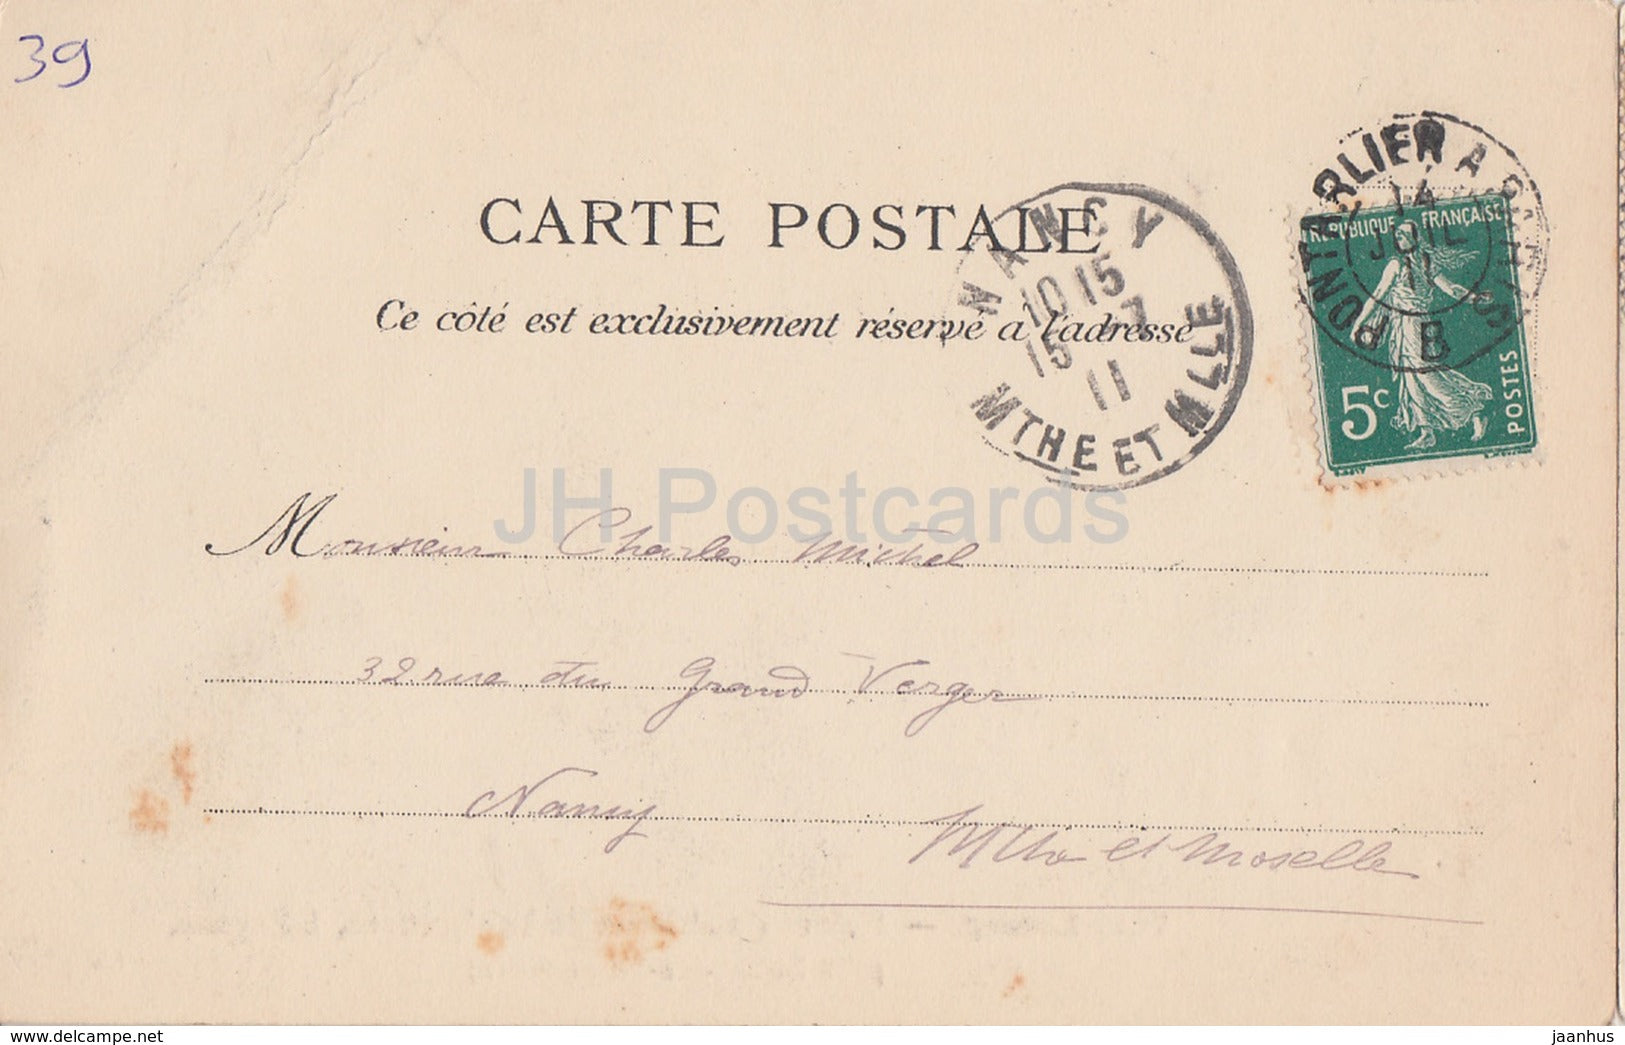 39
CARTE POSTALE
Ce côté est exclusivement réservé a l'adresse
NANCY
10 15
15 7
11
MTHE ET MLLE
PONTARLIER A
14
JUIL
11
B
REPUBLIQUE FRANÇAISE
5c
POSTES
JH Postcards
Monsieur Charles Michel
32 rue du Grand Verger
Nancy
Mthe et Moselle
www.delcampe.net
jaanhus